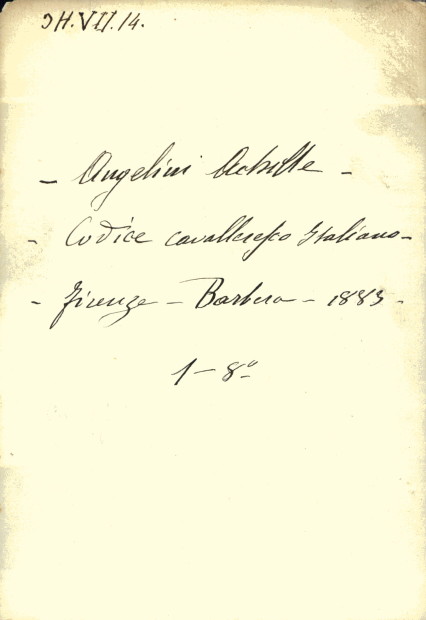 3H.VII.14.
- Angelini Achille -
- Codice cavalleresco Italiano -
- Firenze - Barbera - 1883 -
1 - 8º